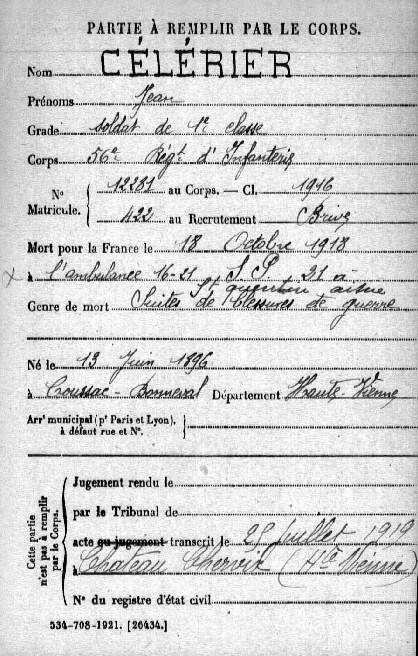 PARTIE À REMPLIR PAR LE CORPS.
Nom CÉLÉRIER
Prénoms Jean
Grade soldat de 1re classe
Corps 56e Régt d'Infanterie
N° Matricule. { 12281 au Corps. — Cl. 1916
422 au Recrutement Brive
Mort pour la France le 18 Octobre 1918
à l'ambulance 16-21 S. P. 21 à
St quentin aisne
Genre de mort Suites de blessures de guerre
Né le 13 Juin 1896
à Croussac-Bonneval Département Haute-Vienne
Arrt municipal (pr Paris et Lyon), à défaut rue et N°. {
Cette partie n'est pas à remplir par le Corps.
Jugement rendu le
par le Tribunal de
acte ou jugement transcrit le 25 juillet 1919
à Château Chervix (Hte Vienne)
N° du registre d'état civil
534-708-1921. [26434.]